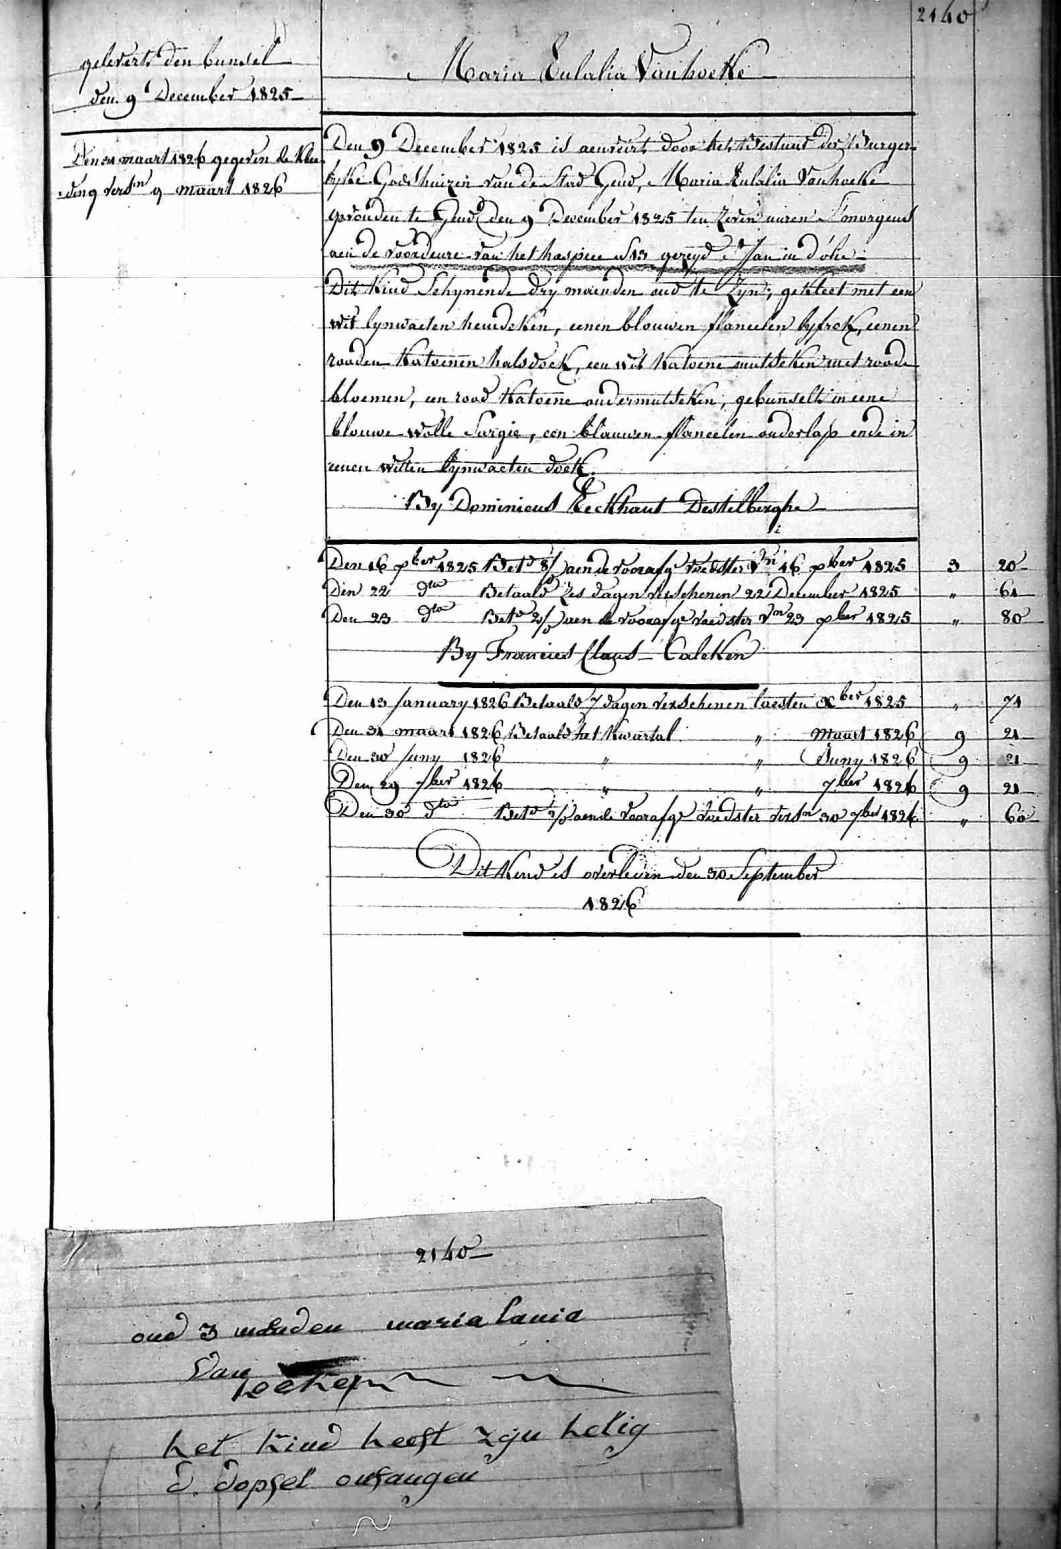 2140
geleverts den bunsel
den 9 December 1825
Den 31 maart 1826 gegeven de klee-
ding versn 9 maart 1826
Maria Eulalia Vanhoekke
Den 9 December 1825 is aenveirt door het Bestuur der Burger-
lyke Godshuizen van de Stad Gend, Maria Eulalia Vanhoekke
gevonden te Gend den 9 December 1825 ten zeven uren S'morgens
aen de voordeure van het hospice N 13 gezeyd St Jan in d'olie
Dit Kind Schynende dry maenden oud te Zyn, gekleet met een
wit lynwaeten hemdeken, eenen blouwen flaneelen lyfrok, eenen
rooden Katoenen halsdoek, een wit Katoene mutseken met roode
bloemen, een rood Katoene ondermutseken, gebunselt in eene
blouwe wolle Surgie, een blauwen flaneelen onderlap ende in
eenen witten lynwaeten doek.
By Dominicus Eeckhaut Destelberghe
Den 16 xber 1825 Betd aen de voorafge voedster Vn 16 xber 1825 3 20
Den 22 dto Betaald zes dagen verschenen 22 December 1825 " 61
Den 23 dto Betd aen de voorafge voedster Vn 23 xber 1825 " 80
By Francies Claus Caleken
Den 13 January 1826 Betaald 7 dagen verschenen laesten xber 1825 " 71
Den 31 maart 1826 Betaald het Kwartal " Maart 1826 9 21
Den 30 Juny 1826 " " Juny 1826 9 21
Den 29 7ber 1826 " " 7ber 1826 9 21
Den 30 dto Betd aen de voorafge voedster versn 30 7ber 1826 " 60
Dit Kind is overleden den 30 September
1826
2140
oud 3 maenden maria lania
Van
hoeke
het kind heeft zyn helig
d. dopsel onfangen